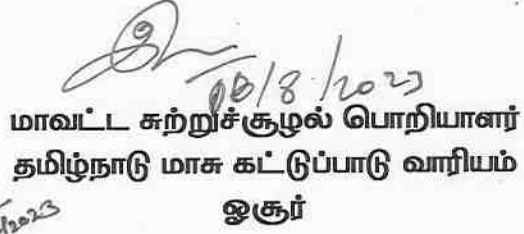 08/8/2023
மாவட்ட சுற்றுச்சூழல் பொறியாளர்
தமிழ்நாடு மாசு கட்டுப்பாடு வாரியம்
ஓசூர்